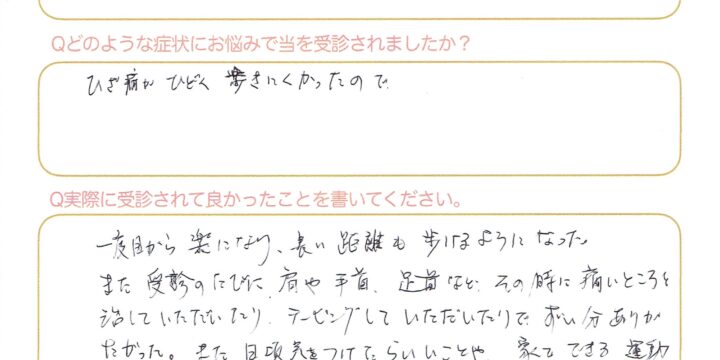 Qどのような症状にお悩みで当を受診されましたか？
ひざ痛がひどく歩きにくかったので
Q実際に受診されて良かったことを書いてください。
一度目から楽になり、長い距離も歩けるようになった
また受診のたびに肩や手首、足首など、その時に痛いところを
治していただいたり、テーピングしていただいたりで ずい分ありが
たかった。また日頃気をつけてたらいいことや、家でできる運動